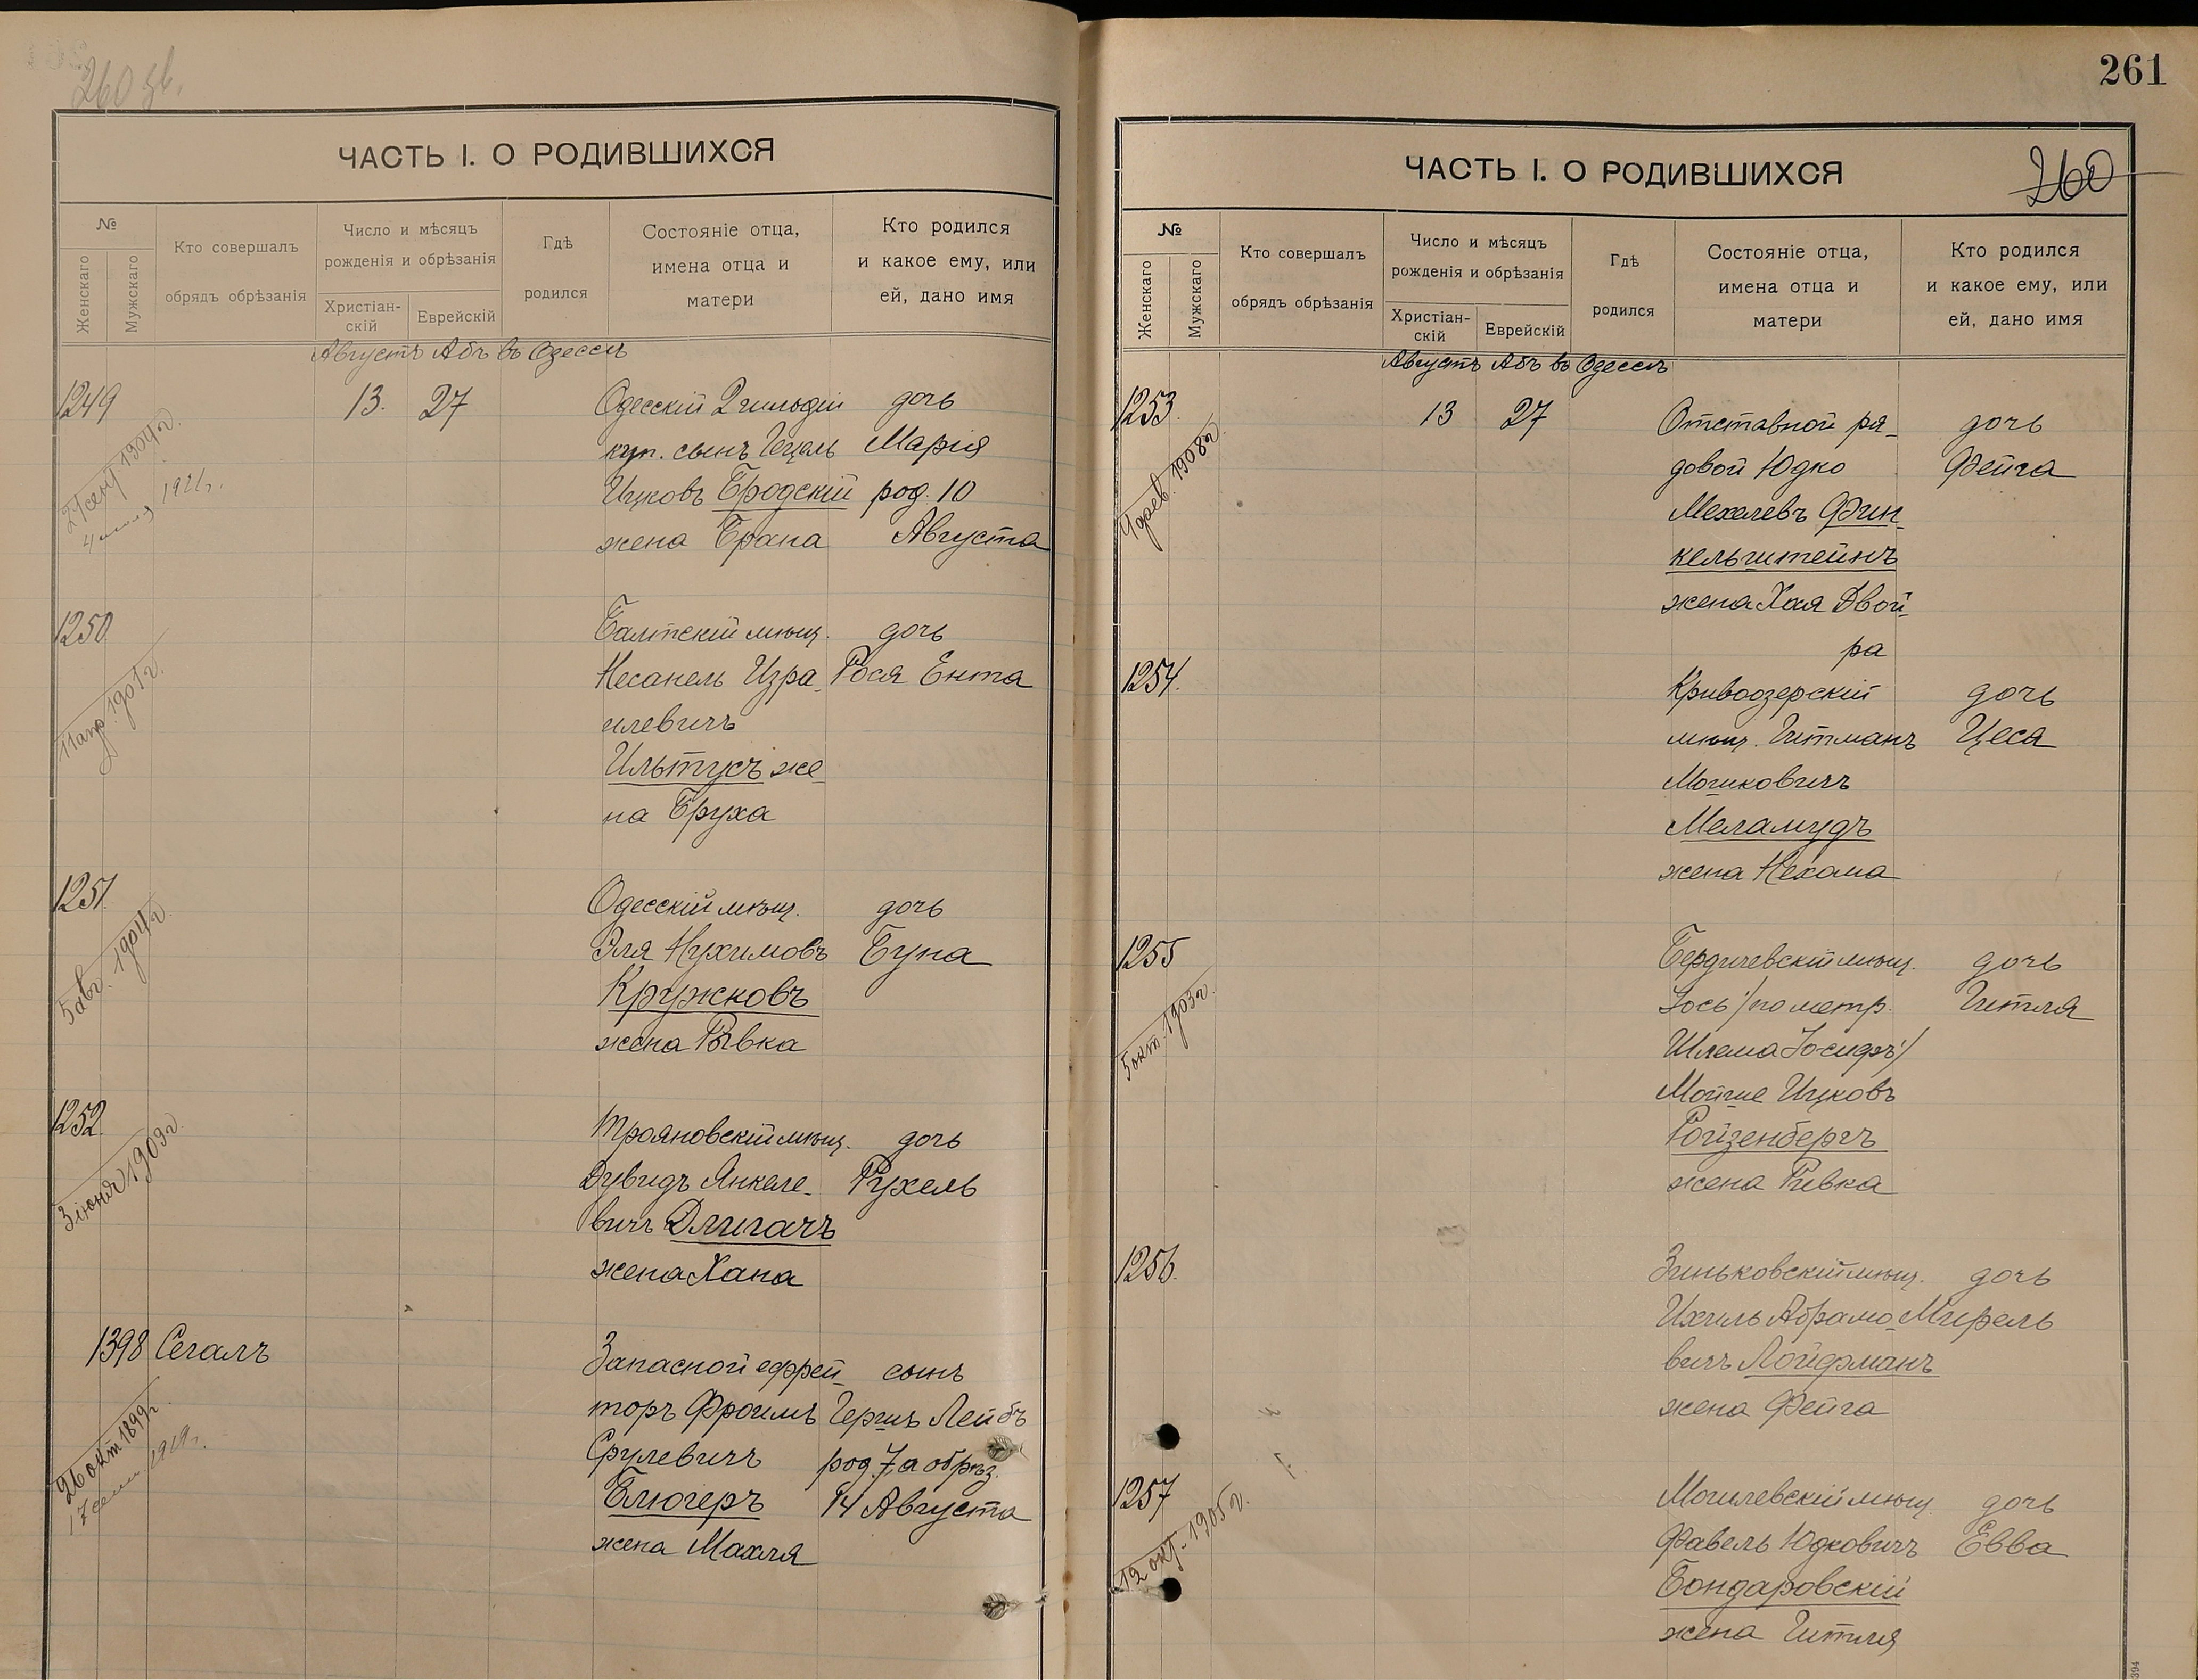 260 зв.
ЧАСТЬ I. О РОДИВШИХСЯ
№
Женскаго
Мужскаго
Кто совершалъ
обрядъ обрѣзанія
Число и мѣсяцъ
рожденія и обрѣзанія
Христіан-
скій
Еврейскій
Гдѣ
родился
Состояніе отца,
имена отца и
матери
Кто родился
и какое ему, или
ей, дано имя
Августъ Абъ въ Одессѣ
1249 13. 27 Одесскій 2 гильдіи дочь
куп. сынъ Гецель Марія
Ицковъ Бродскій род. 10
жена Брана Августа
1904 г.
1921 г.
1250 Балтскій мѣщ. дочь
Несанель Изра- Рося Ента
илевичъ
Ильтусъ же
на Бруха
11 апр. 1901 г.
1251. Одесскій мѣщ. дочь
Эля Нухимовъ Буна
Кружковъ
жена Рывка
5 авг. 1904 г.
1252. Трояновскій мѣщ. дочь
Дувидъ Янкеле- Рухель
вичъ Длигачъ
жена Хана
3 іюня 1909 г.
1398 Сегалъ Запасной ефрей- сынъ
торъ Фроимъ Гершъ Лейбъ
Срулевичъ род. 7, а обрѣз.
Блюгеръ 14 Августа
жена Махля
26 окт 1899 г.
1919 г.
261
ЧАСТЬ I. О РОДИВШИХСЯ
260
№
Женскаго
Мужскаго
Кто совершалъ
обрядъ обрѣзанія
Число и мѣсяцъ
рожденія и обрѣзанія
Христіан-
скій
Еврейскій
Гдѣ
родился
Состояніе отца,
имена отца и
матери
Кто родился
и какое ему, или
ей, дано имя
Августъ Абъ въ Одессѣ
1253. 13 27 Отставной ря- дочь
довой Юдко Фейга
Мехелевъ Фин-
кельштейнъ
жена Хая Двой-
ра
фев. 1908 г.
1254. Кривоозерскій дочь
мѣщ. Гитманъ Цеся
Мошковичъ
Меламудъ
жена Нехама
1255 Бердичевскій мѣщ. дочь
Іось /по метр. Гитля
Шлема Іосифъ/
Мойше Ицковъ
Ройзенбергъ
жена Ривка
5 окт. 1903 г.
1256. Зиньковскій мѣщ. дочь
Ихиль Абрамо- Мирель
вичъ Лойфманъ
жена Фейга
1257 Могилевскій мѣщ. дочь
Фавель Юдковичъ Евва
Бондаровскій
жена Гитля
12 окт. 1905 г.
394